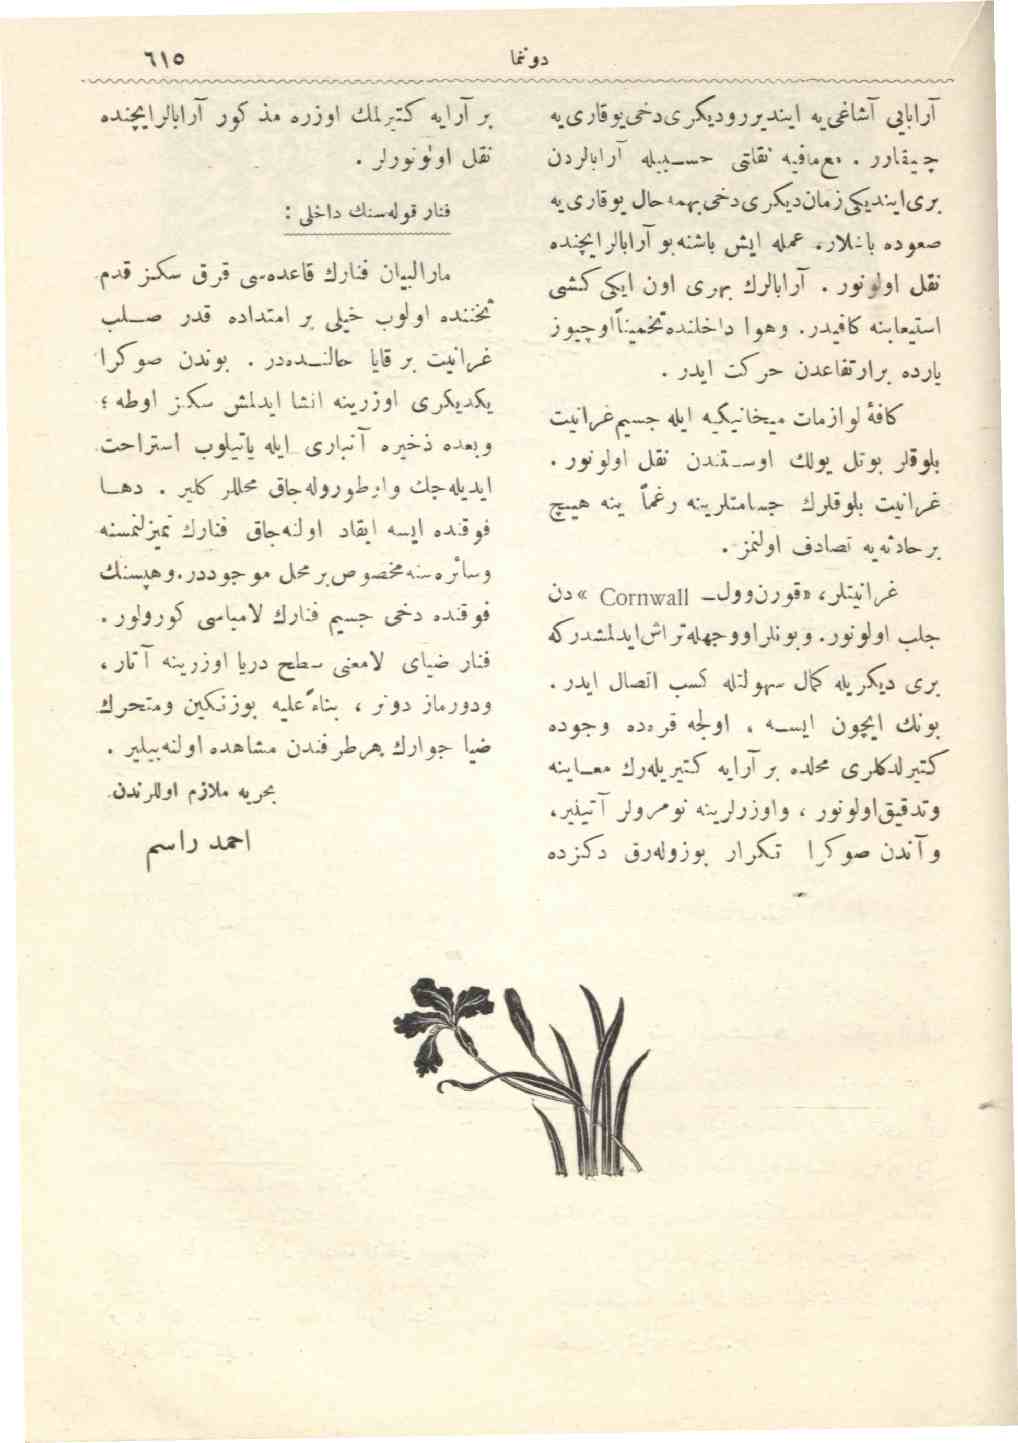 دوننما
٦١٥
آرابایی آشاغی‌یه ایندیررودیکری‌دخی‌یوقاری‌یه
چیقارر . مع‌مافیه نقلتی حسبیله آرابالردن
بری‌ایندیکی‌زمان‌دیکری‌دخی‌بهمه‌حال یوقاری‌یه
صعوده باشلار. عمله ایش باشنه‌بو آرابالر ایچنده
نقل اولونور . آرابالرك بهری اون ایکی کشی
استیعابنه کافیدر. وهوا داخلنده‌تخمیناً اوچیوز
یارده برارتفاعدن حرکت ایدر .
کافهٔ لوازمات میخانیکیه ایله جسیم‌غرانیت
بلوقلر بوتل یولك اوستندن نقل اولونور .
غرانیت بلوقلرك جسامتلرینه رغماً ینه هیچ
برحادثه‌یه تصادف اولنمز .
غرانیتلر، «قورن‌وول – Cornwall» دن
جلب اولونور. وبونلراووجهله‌تراش‌ایدلمشدرکه
بری دیکریله کمال سهولتله کسب اتصال ایدر .
بونك ایچون ایسه ، اولجه قره‌ده وجوده
کتیرلدکلری محلده بر آرایه کتیریله‌رك معاینه
وتدقیق‌اولونور ، واوزرلرینه نومرولر آتیلیر،
وآندن صوکرا تکرار بوزوله‌رق دکزده
بر آرایه کتیرلمك اوزره مذکور آرابالرایچنده
نقل اولونورلر .
فنار قوله‌سنك داخلی :
مارالبیان فنارك قاعده‌سی قرق سکز قدم
ثخننده اولوب خیلی بر امتداده قدر صلب
غرانیت بر قایا حالنده‌در . بوندن صوکرا
یکدیکری اوزرینه انشا ایدلمش سکز اوطه ؛
وبعده ذخیره آنباری ایله یاتیلوب استراحت
ایدیله‌جك واوطوروله‌جاق محللر کلیر . دها
فوقنده ایسه ایقاد اولنه‌جاق فنارك تمیزلنمسنه
وسائره‌سنه‌مخصوص‌برمحل موجوددر.وهپسنك
فوقنده دخی جسیم فنارك لامباسی کورولور.
فنار ضیای لامعنی سطح دریا اوزرینه آتار ،
ودورماز دونر ، بناءً علیه بوزنکین ومتحرك
ضیا جوارك هرطرفندن مشاهده اولنه‌بیلیر .
بحریه ملازم اوللرندن
احمد راسم